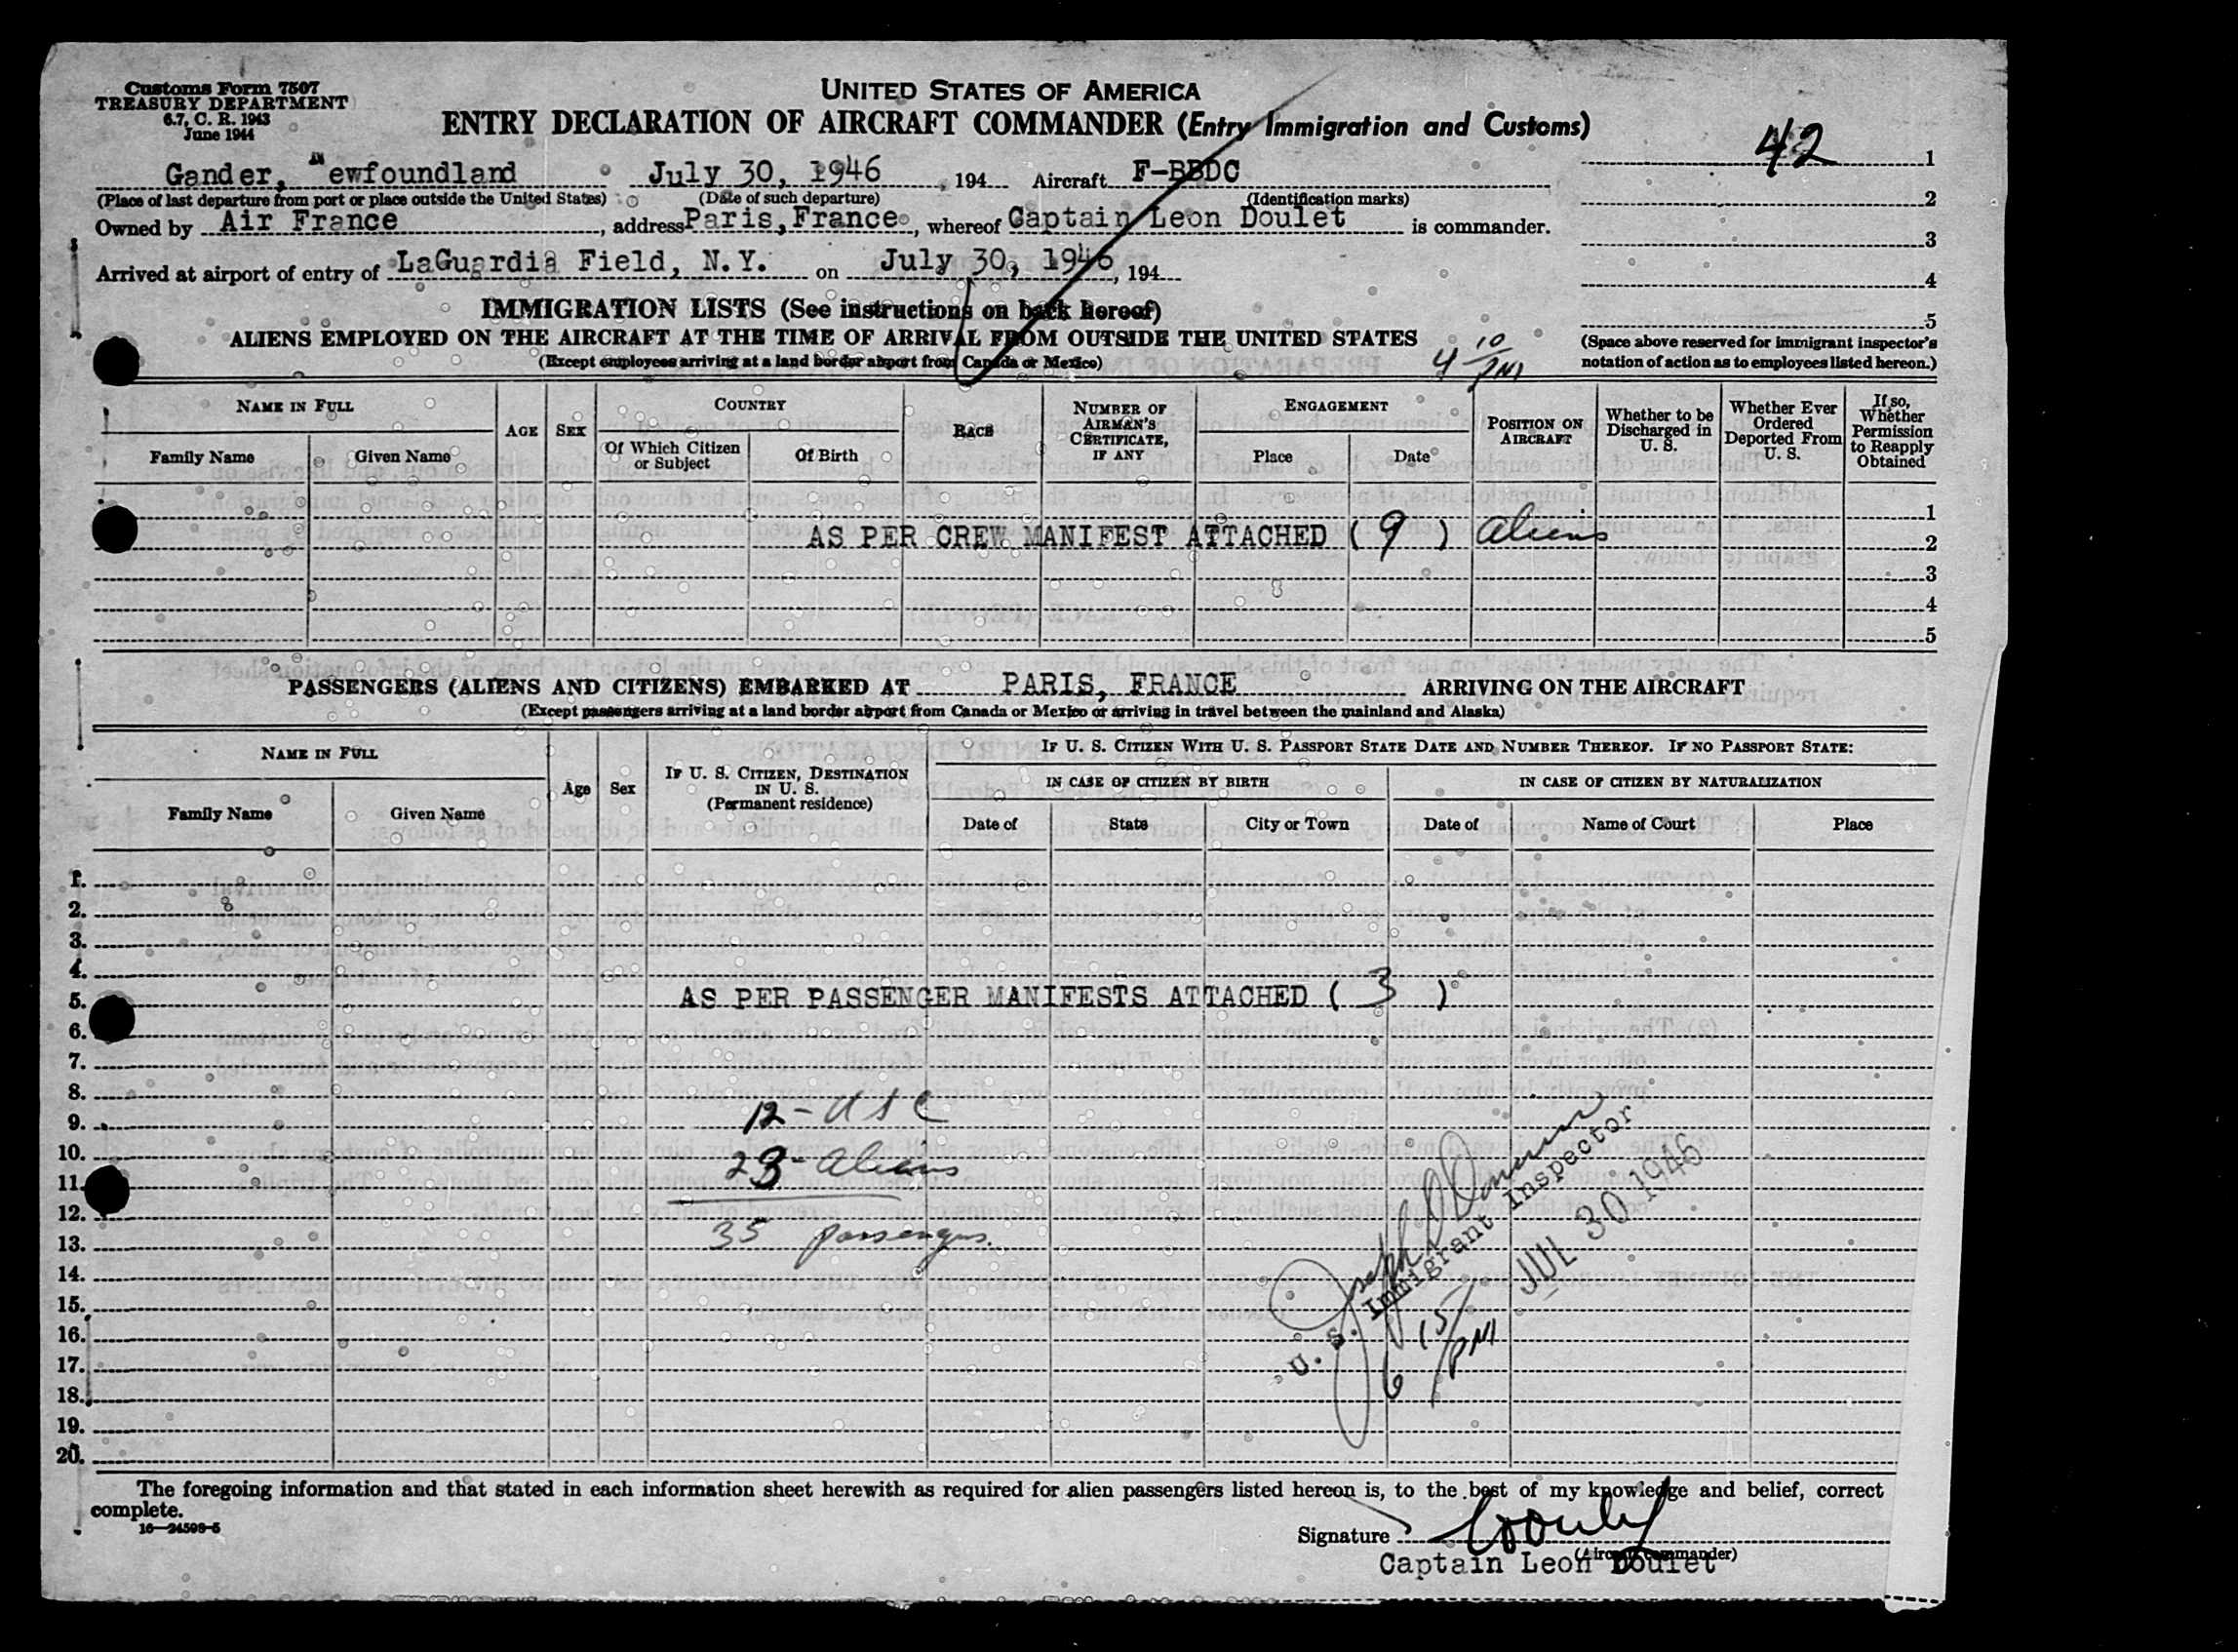 Customs Form 7507
TREASURY DEPARTMENT
6.7, C. R. 1943
June 1944
UNITED STATES OF AMERICA
ENTRY DECLARATION OF AIRCRAFT COMMANDER (Entry Immigration and Customs)
42
Gander, Newfoundland July 30, 1946, 194 Aircraft F-BBDC
(Place of last departure from port or place outside the United States) (Date of such departure) (Identification marks)
Owned by Air France, address Paris, France, whereof Captain Leon Doulet is commander.
Arrived at airport of entry of LaGuardia Field, N.Y. on July 30, 1946, 194
1
2
3
4
5
(Space above reserved for immigrant inspector's
notation of action as to employees listed hereon.)
IMMIGRATION LISTS (See instructions on back hereof)
ALIENS EMPLOYED ON THE AIRCRAFT AT THE TIME OF ARRIVAL FROM OUTSIDE THE UNITED STATES
(Except employees arriving at a land border airport from Canada or Mexico)
4 10/PM
NAME IN FULL
Family Name
Given Name
AGE
SEX
COUNTRY
Of Which Citizen
or Subject
Of Birth
RACE
NUMBER OF
AIRMAN'S
CERTIFICATE,
IF ANY
ENGAGEMENT
Place
Date
POSITION ON
AIRCRAFT
Whether to be
Discharged in
U. S.
Whether Ever
Ordered
Deported From
U. S.
If so,
Whether
Permission
to Reapply
Obtained
AS PER CREW MANIFEST ATTACHED ( 9 ) Aliens
1
2
3
4
5
PASSENGERS (ALIENS AND CITIZENS) EMBARKED AT PARIS, FRANCE ARRIVING ON THE AIRCRAFT
(Except passengers arriving at a land border airport from Canada or Mexico or arriving in travel between the mainland and Alaska)
NAME IN FULL
Family Name
Given Name
Age
Sex
IF U. S. CITIZEN, DESTINATION
IN U. S.
(Permanent residence)
IF U. S. CITIZEN WITH U. S. PASSPORT STATE DATE AND NUMBER THEREOF. IF NO PASSPORT STATE:
IN CASE OF CITIZEN BY BIRTH
IN CASE OF CITIZEN BY NATURALIZATION
Date of
State
City or Town
Date of
Name of Court
Place
1.
2.
3.
4.
5. AS PER PASSENGER MANIFESTS ATTACHED ( 3 )
6.
7.
8.
9. 12 - USC
10. 23 - Aliens
11.
12.
13. 35 passengers.
14.
15.
16.
17.
18.
19.
20.
U. S. Immigrant Inspector
JUL 30 1946
6 15/PM
The foregoing information and that stated in each information sheet herewith as required for alien passengers listed hereon is, to the best of my knowledge and belief, correct
complete.
16—24598-5
Signature
(Aircraft commander)
Captain Leon Doulet